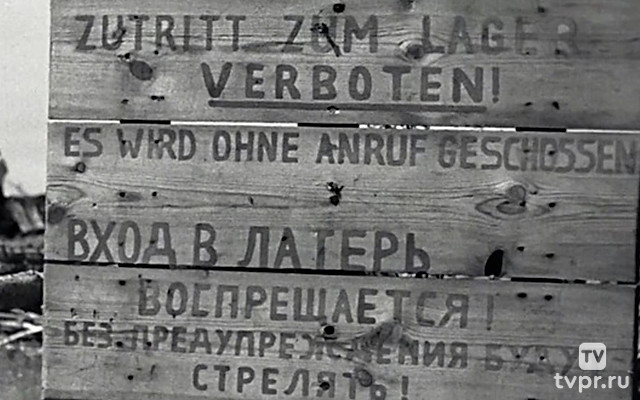 ZUTRITT ZUM LAGER
VERBOTEN!
ES WIRD OHNE ANRUF GESCHOSSEN
ВХОД В ЛАГЕРЬ
ВОСПРЕЩАЕТСЯ!
БЕЗ ПРЕДУПРЕЖДЕНИЯ БУДУТ
СТРЕЛЯТЬ!
TV
tvpr.ru